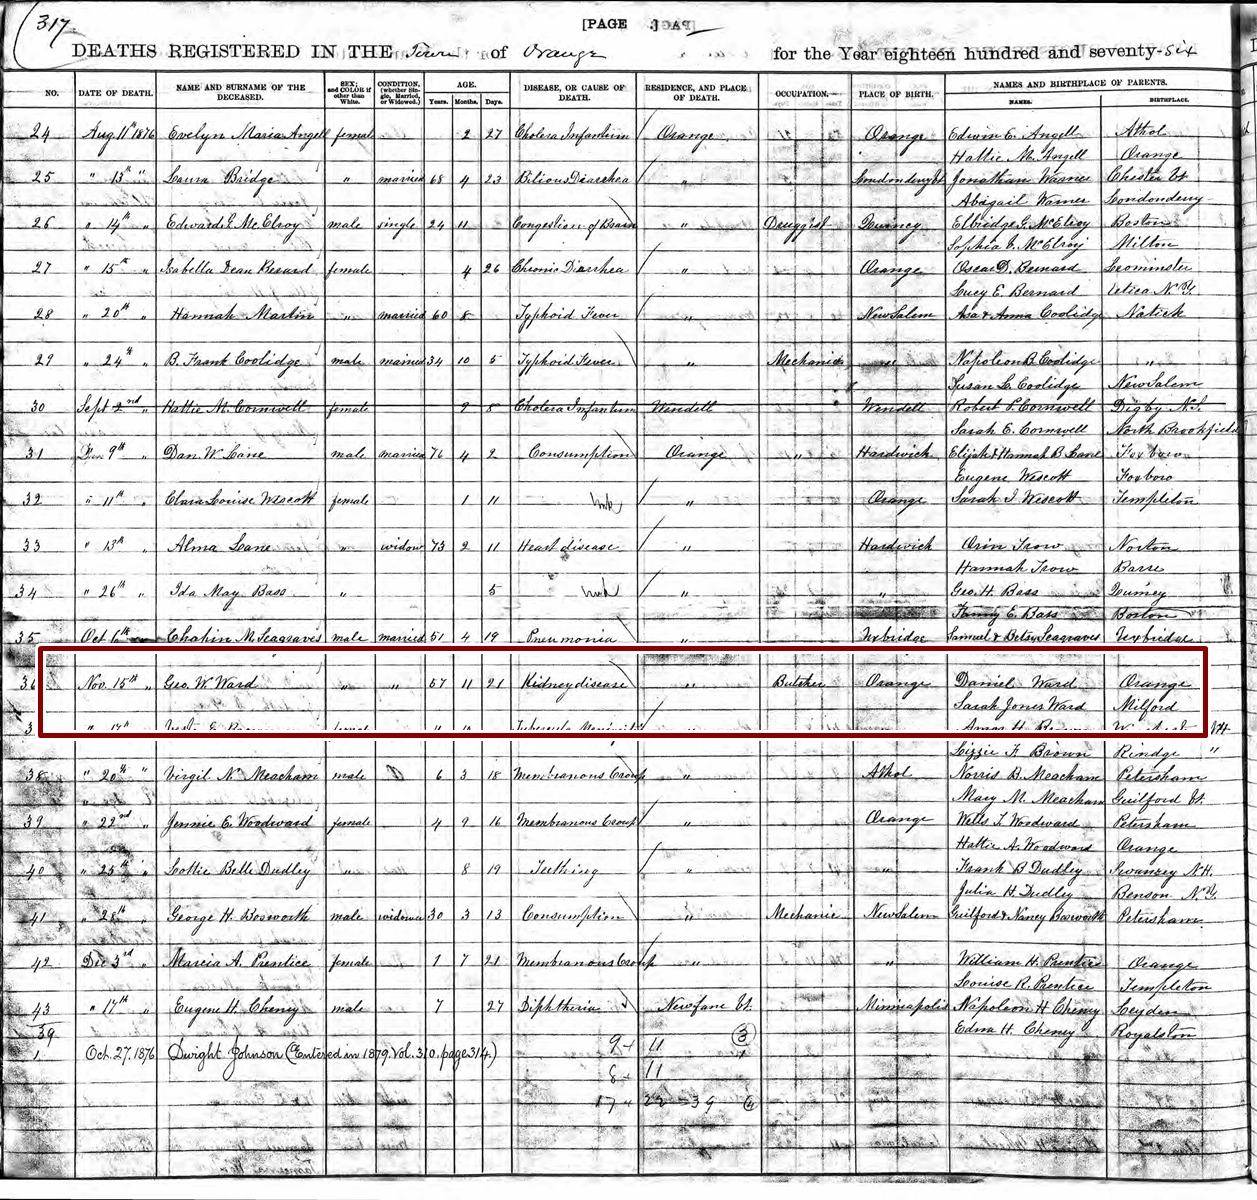 317
[PAGE 1.]
DEATHS REGISTERED IN THE Town of Orange for the Year eighteen hundred and seventy-six
NO. DATE OF DEATH. NAME AND SURNAME OF THE DECEASED. SEX; and COLOR if other than White. CONDITION, (whether Single, Married, or Widowed.) AGE. Years. Months. Days. DISEASE, OR CAUSE OF DEATH. RESIDENCE, AND PLACE OF DEATH. OCCUPATION. PLACE OF BIRTH. NAMES AND BIRTHPLACE OF PARENTS. NAMES. BIRTHPLACE.
24 Aug. 11th 1876 Evelyn Maria Angell female 2 27 Cholera Infantum Orange Orange Edwin E. Angell Athol
Hattie M. Angell Orange
25 " 13th " Laura Bridge " married 68 4 23 Bilious Diarrhea " Londonderry Vt. Jonathan Warner Chester Vt
Abigail Warner Londonderry
26 " 14th " Edward I. McElroy male single 24 11 Congestion of Brain " Druggist Quincy Elbridge G. McElroy Boston
Sophia McElroy Milton
27 " 15th " Isabella Dean female 4 26 Chronic Diarrhea " Orange Oscar D. Bernard Leominster
Lucy E. Bernard Utica N.Y.
28 " 20th " Hannah Martin " married 60 8 Typhoid Fever " New Salem Asa & Anna Coolidge Natick
29 " 24th " B. Frank Coolidge male married 34 10 5 Typhoid Fever " Mechanic " Napoleon B. Coolidge "
Susan L. Coolidge New Salem
30 Sept 2nd " Hattie M. Cornwell female 9 8 Cholera Infantum Wendell Wendell Robert P. Cornwell Digby N.S.
Sarah E. Cornwell North Brookfield
31 9th " Dan. W. Lane male married 76 4 2 Consumption Orange " Hardwick Elijah & Hannah B. Lane Foxboro
Eugene Wescott Foxboro
32 " 11th " Clara Louise Wescott female 1 11 Unk " Orange Sarah J Wescott Templeton
33 " 13th " Alma Lane " widow 73 2 11 Heart disease " Hardwick Orin Trow Norton
Hannah Trow Barre
34 " 26th " Ida May Bass " 5 Unk " " Geo. H. Bass Quincy
Fanny E. Bass Boston
35 Oct 6th Chapin M. Seagraves male married 51 4 19 Pneumonia " Uxbridge Samuel & Betsy Seagraves Uxbridge
36 Nov. 15th " Geo. W. Ward " " 57 11 21 Kidney disease " Butcher Orange Daniel Ward Orange
Sarah Jones Ward Milford
Lizzie F. Brown Rindge "
38 " 20th " Virgil N. Meacham male 6 3 18 Membranous Croup " Athol Norris B. Meacham Petersham
Mary M. Meacham Guilford Vt.
39 " 22nd " Jennie E. Woodward female 4 9 16 Membranous Croup " Orange Wells T. Woodward Petersham
Hattie A. Woodward Orange
40 " 25th " Lottie Belle Dudley " 8 19 Teething " " Frank B Dudley Swanzey N.H.
Julia H. Dudley Benson N.Y.
41 " 28th " George H. Bosworth male widower 30 3 13 Consumption " Mechanic New Salem Guilford & Nancy Bosworth Petersham
42 Dec 3rd " Marcia A. Prentice female 1 7 21 Membranous Croup " " William H. Prentice Orange
Louise R. Prentice Templeton
43 " 17th " Eugene H. Cheney male 7 27 Diphtheria Newfane Vt. Minneapolis Napoleon H Cheney Leyden
39 Edna H. Cheney Royalston
1 Oct. 27. 1876 Dwight Johnson (Entered in 1879. Vol. 310. page 314.) 9 11 3
8 11
17 22 39